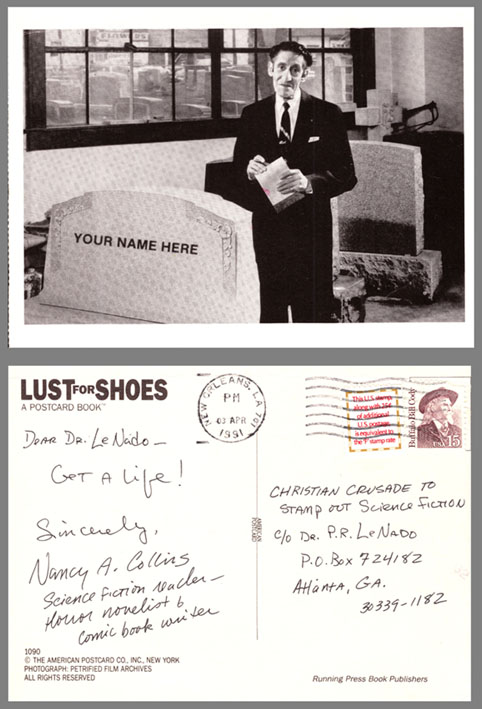 FLOWERS
YOUR NAME HERE
LUST FOR SHOES
A POSTCARD BOOK™
NEW ORLEANS, LA 701
PM
03 APR
1991
This U.S. stamp,
along with 25¢
of additional
U.S. postage,
is equivalent to
the 'F' stamp rate
Buffalo Bill Cody
USA 15
Dear Dr. LeNado—
Get A Life!
Sincerely,
Nancy A. Collins
Science fiction reader—
Horror novelist &
comic book writer
CHRISTIAN CRUSADE TO
STAMP OUT SCIENCE FICTION
c/o DR. P.R. LeNADO
P.O. Box 724182
Atlanta, GA.
30339-1182
AMERICAN
POSTCARD
1090
© THE AMERICAN POSTCARD CO., INC., NEW YORK
PHOTOGRAPH: PETRIFIED FILM ARCHIVES
ALL RIGHTS RESERVED
Running Press Book Publishers